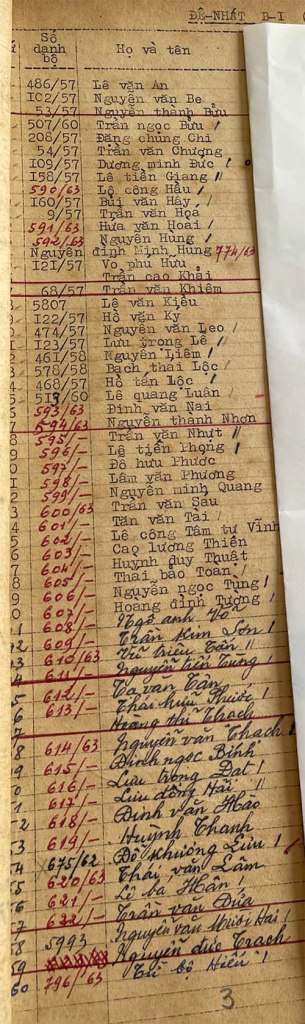 ĐỆ-NHẤT B-I
Số danh bộ Họ và tên
486/57 Lê văn An
IC2/57 Nguyễn văn Be
53/57 Nguyễn thành Bửu
507/60 Trần ngọc Bửu /
208/57 Đặng chung Chi
54/57 Trần văn Chương
I09/57 Dương minh Đức
I58/57 Lê tiến Giang //
590/63 Lê công Hầu /
I60/57 Bùi văn Hây /
9/57 Trần văn Họa
591/63 Hứa văn Hoai /
592/63 Nguyễn Hung /
Nguyễn đình Minh Hung 774/63
I2I/57 Vo phu Hữu
Trần cao Khải
68/57 Trần văn Khiêm
5807 Lê văn Kiểu
I22/57 Hồ văn Ky
474/57 Nguyễn văn Leo /
I23/57 Lưu trong Lê //
461/58 Nguyễn Liêm /
578/58 Bạch thai Lộc /
468/57 Hồ tấn Lộc /
5I3/60 Lê quang Luân /
593/63 Đinh văn Nai
594/63 Nguyễn thành Nhơn
595/- Trần văn Nhựt //
596/- Lê tiến Phong /
597/- Đỗ hưu Phước
598/- Lâm văn Phương
599/- Nguyễn minh Quang
600/63 Trần văn Sáu
601/- Tân văn Tai /
602/- Lê công Tâm tư Vĩnh
603/- Cao lương Thiên
604/- Huỳnh duy Thuật
605/- Thai bảo Toan /
606/- Nguyễn ngọc Tung /
607/- Hoang đình Tường /
608/- Ngô anh Võ
609/- Trần Kim Sơn /
610/63 Vũ triều Tân //
611/- Nguyễn tiến Trung /
612/- Tạ văn Tân
613/- Thái hữu Phước /
Hoàng thế Thạch
614/63 Nguyễn văn Thạch
615/- Đinh ngọc Bính
616/- Lưu trọng Đạt /
617/- Lưu đồng Hải //
618/- Đinh văn Hảo
619/- Huỳnh Thanh
675/62 Đỗ Khương Lưu /
620/63 Thái văn Lâm
621/- Lê bá Hân /
622/- Trần văn Dứa
5993 Nguyễn văn Mười Hai /
Nguyễn đức Trạch
60 796/63 Từ bộ Hiếu /
3